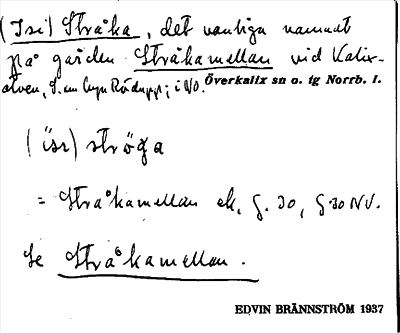 (Isi) Stråka, det vanliga namnet
på gården Stråkamellan vid Kalix-
älven, S. om byn Rödupp; i NO. Överkalix sn o. tg Norrb. l.
(isi) ströga
= Stråkamellan ek. S. 30, S 30 NV.
Se Stråkamellan.
EDVIN BRÄNNSTRÖM 1937